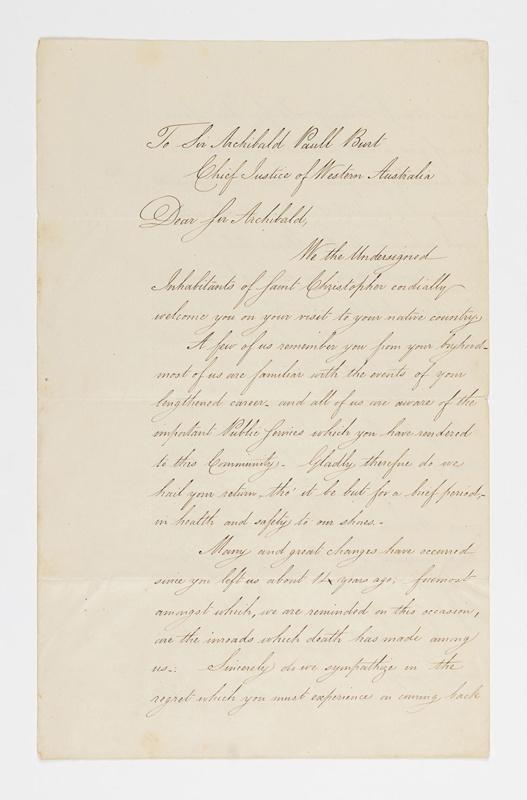 To Sir Archibald Paull Burt
Chief Justice of Western Australia
Dear Sir Archibald,
We the Undersigned
Inhabitants of Saint Christopher cordially
welcome you on your visit to your native country.
A few of us remember you from your boyhood-
most of us are familiar with the events of your
lengthened career- and all of us are aware of the
important Public Services which you have rendered
to this Community- Gladly therefore do we
hail your return- tho' it be but for a brief period,-
in health and safety to our shores.-
Many and great changes have occurred
since you left us about 12 years ago; foremost
amongst which, we are reminded on this occasion,
are the inroads which death has made among
us-: Sincerely do we sympathize in the
regret which you must experience on coming back